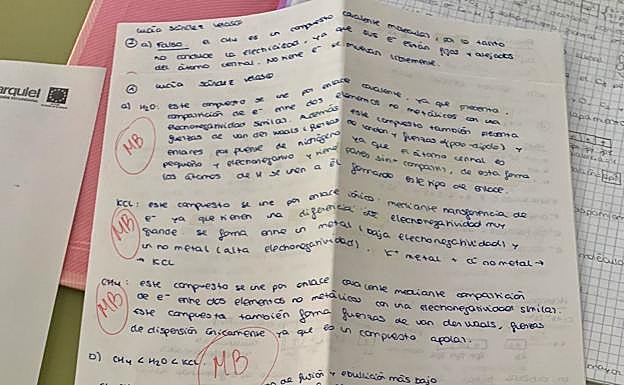 Lucía Sández Velasco
② a) Falso. El CH4 es un compuesto covalente molecular, por lo tanto
no conduce la electricidad, ya que sus e- están fijos y alejados
del átomo central. No tiene e- se muevan libremente.
① Lucía Sández Velasco
a) H2O: este compuesto se une por enlace covalente, ya que presenta
compartición de e- entre dos elementos no metálicos con una
electronegatividad similar. Además este compuesto también presenta
fuerzas de van der Waals (fuerzas de London y fuerzas dipolo-dipolo) y
enlaces por puente de hidrógeno ya que el átomo central es
pequeño y electronegativo y tiene pares sin compartir, de esta forma
los átomos de H se unen a él formando este tipo de enlace.
MB
KCl: este compuesto se une por enlace iónico, mediante transferencia de
e- ya que tienen una diferencia de electronegatividad muy
grande se forma entre un metal (baja electronegatividad) y
un no metal (alta electronegatividad). K+ metal + Cl- no metal →
→ KCl
MB
CH4: este compuesto se une por enlace covalente mediante compartición
de e- entre dos elementos no metálicos con una electronegatividad similar.
Este compuesto también forma fuerzas de van der Waals, fuerzas
de dispersión únicamente ya que es un compuesto apolar.
MB
b) CH4 < H2O < KCl
MB
de fusión y ebullición más bajo
arquiel